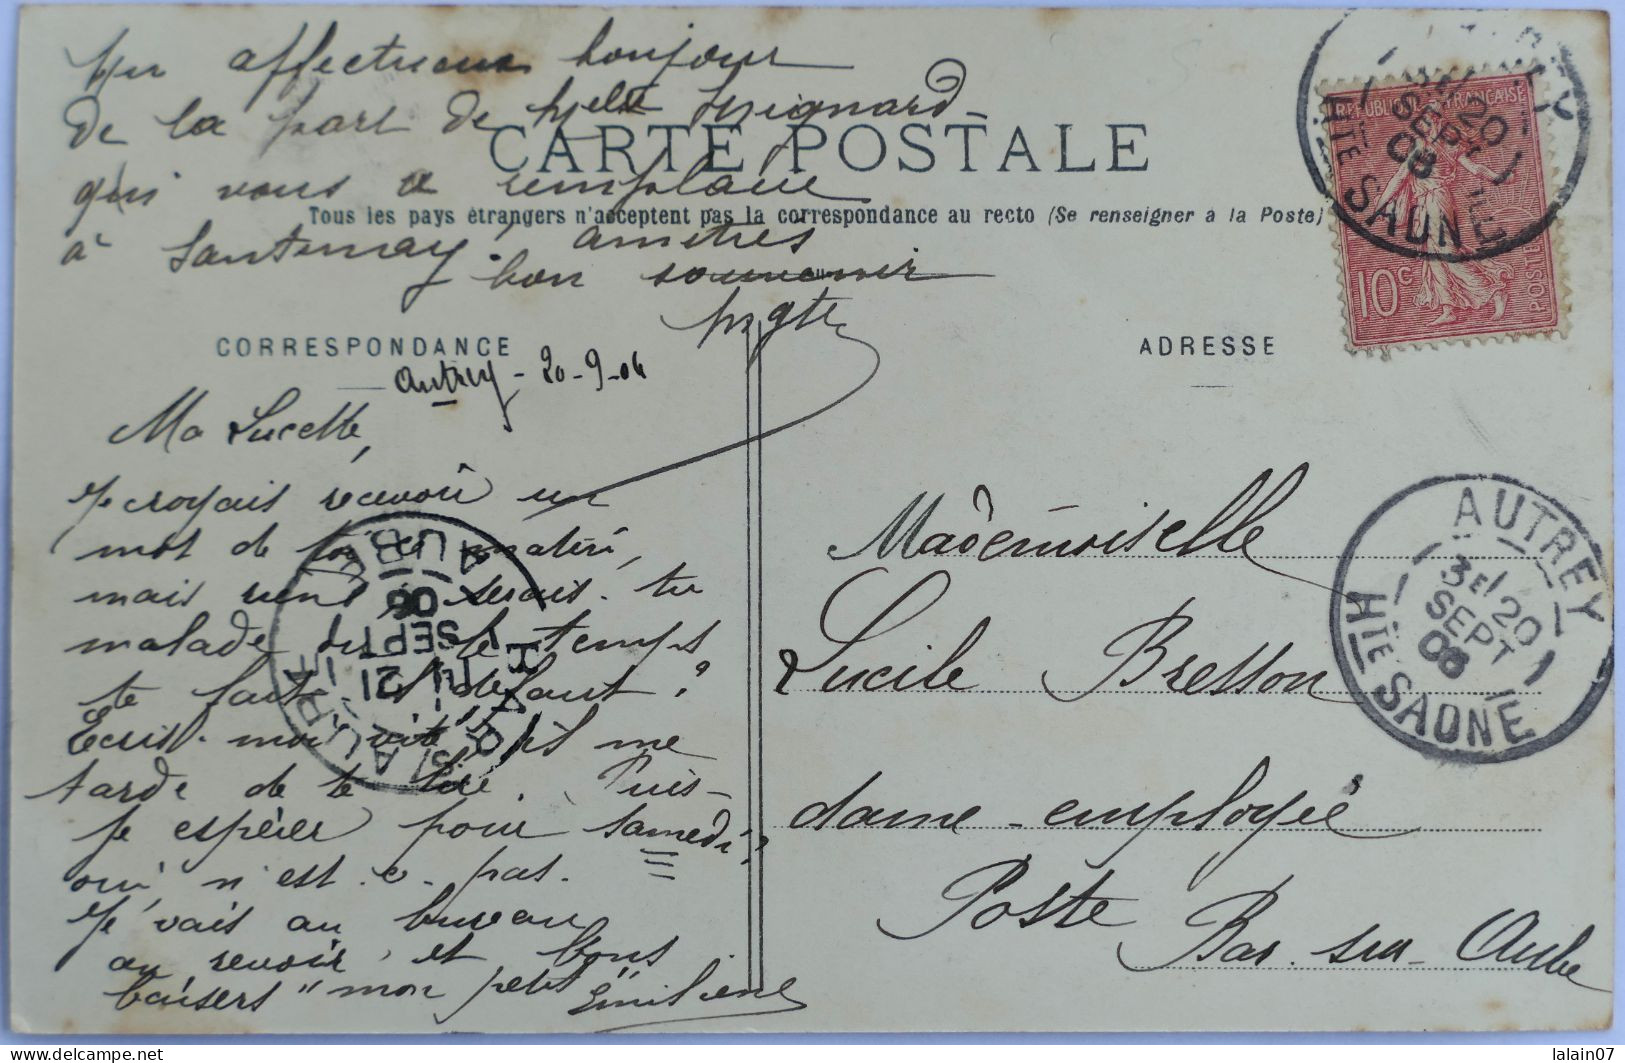 Un affectueux bonjour
de la part de Melle Mignard
qui vous a remplacée
à Santenay, amitiés
bon souvenir
CARTE POSTALE
Tous les pays étrangers n'acceptent pas la correspondance au recto (Se renseigner à la Poste)
CORRESPONDANCE
Autrey - 20-9-06
Ma Lucette,
Je croyais recevoir un
mot de toi ce matin,
mais rien, serais-tu
malade ou le temps
te fait-il défaut ?
Ecris-moi vite, il me
tarde de te lire. Puis-
je espérer pour samedi ?
oui, n'est-ce pas.
Je vais au bureau
au revoir et bons
baisers "mon petit" Emilienne
ADRESSE
Mademoiselle
Lucile Bresson
dame-employée
Poste Bar-sur-Aube
REPUBLIQUE FRANÇAISE
10c
POSTES
3E/20
SEPT
06
HTE SAONE
AUTREY
3E/20
SEPT
06
HTE SAONE
BAR
AUBE
21
SEPT
06
lalain07